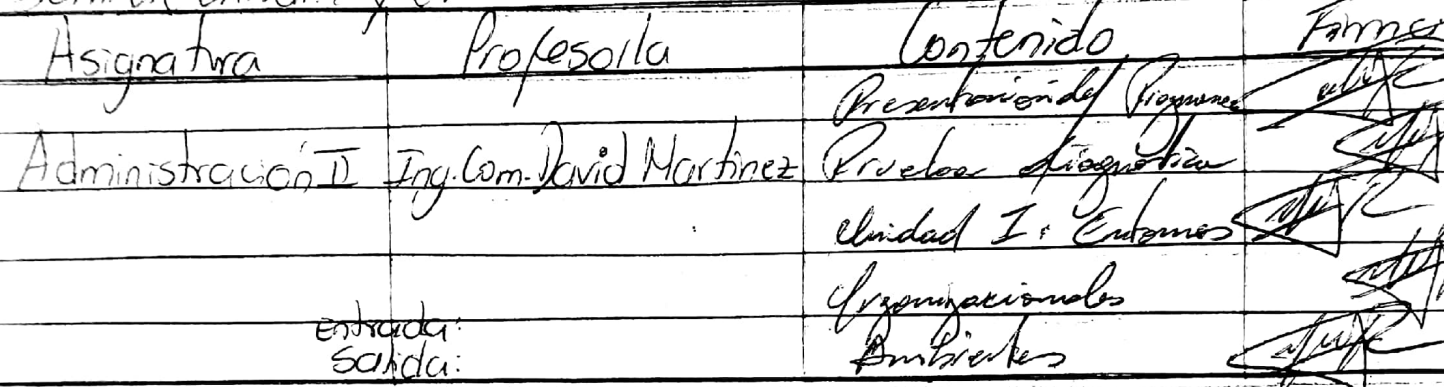 Asignatura Profesor/a Contenido Firma
Presentación del Programa
Administración II Ing. Com. David Martinez Prueba diagnóstica
Unidad I: Entornos
Organizacionales
Entrada:
Salida: Ambientes